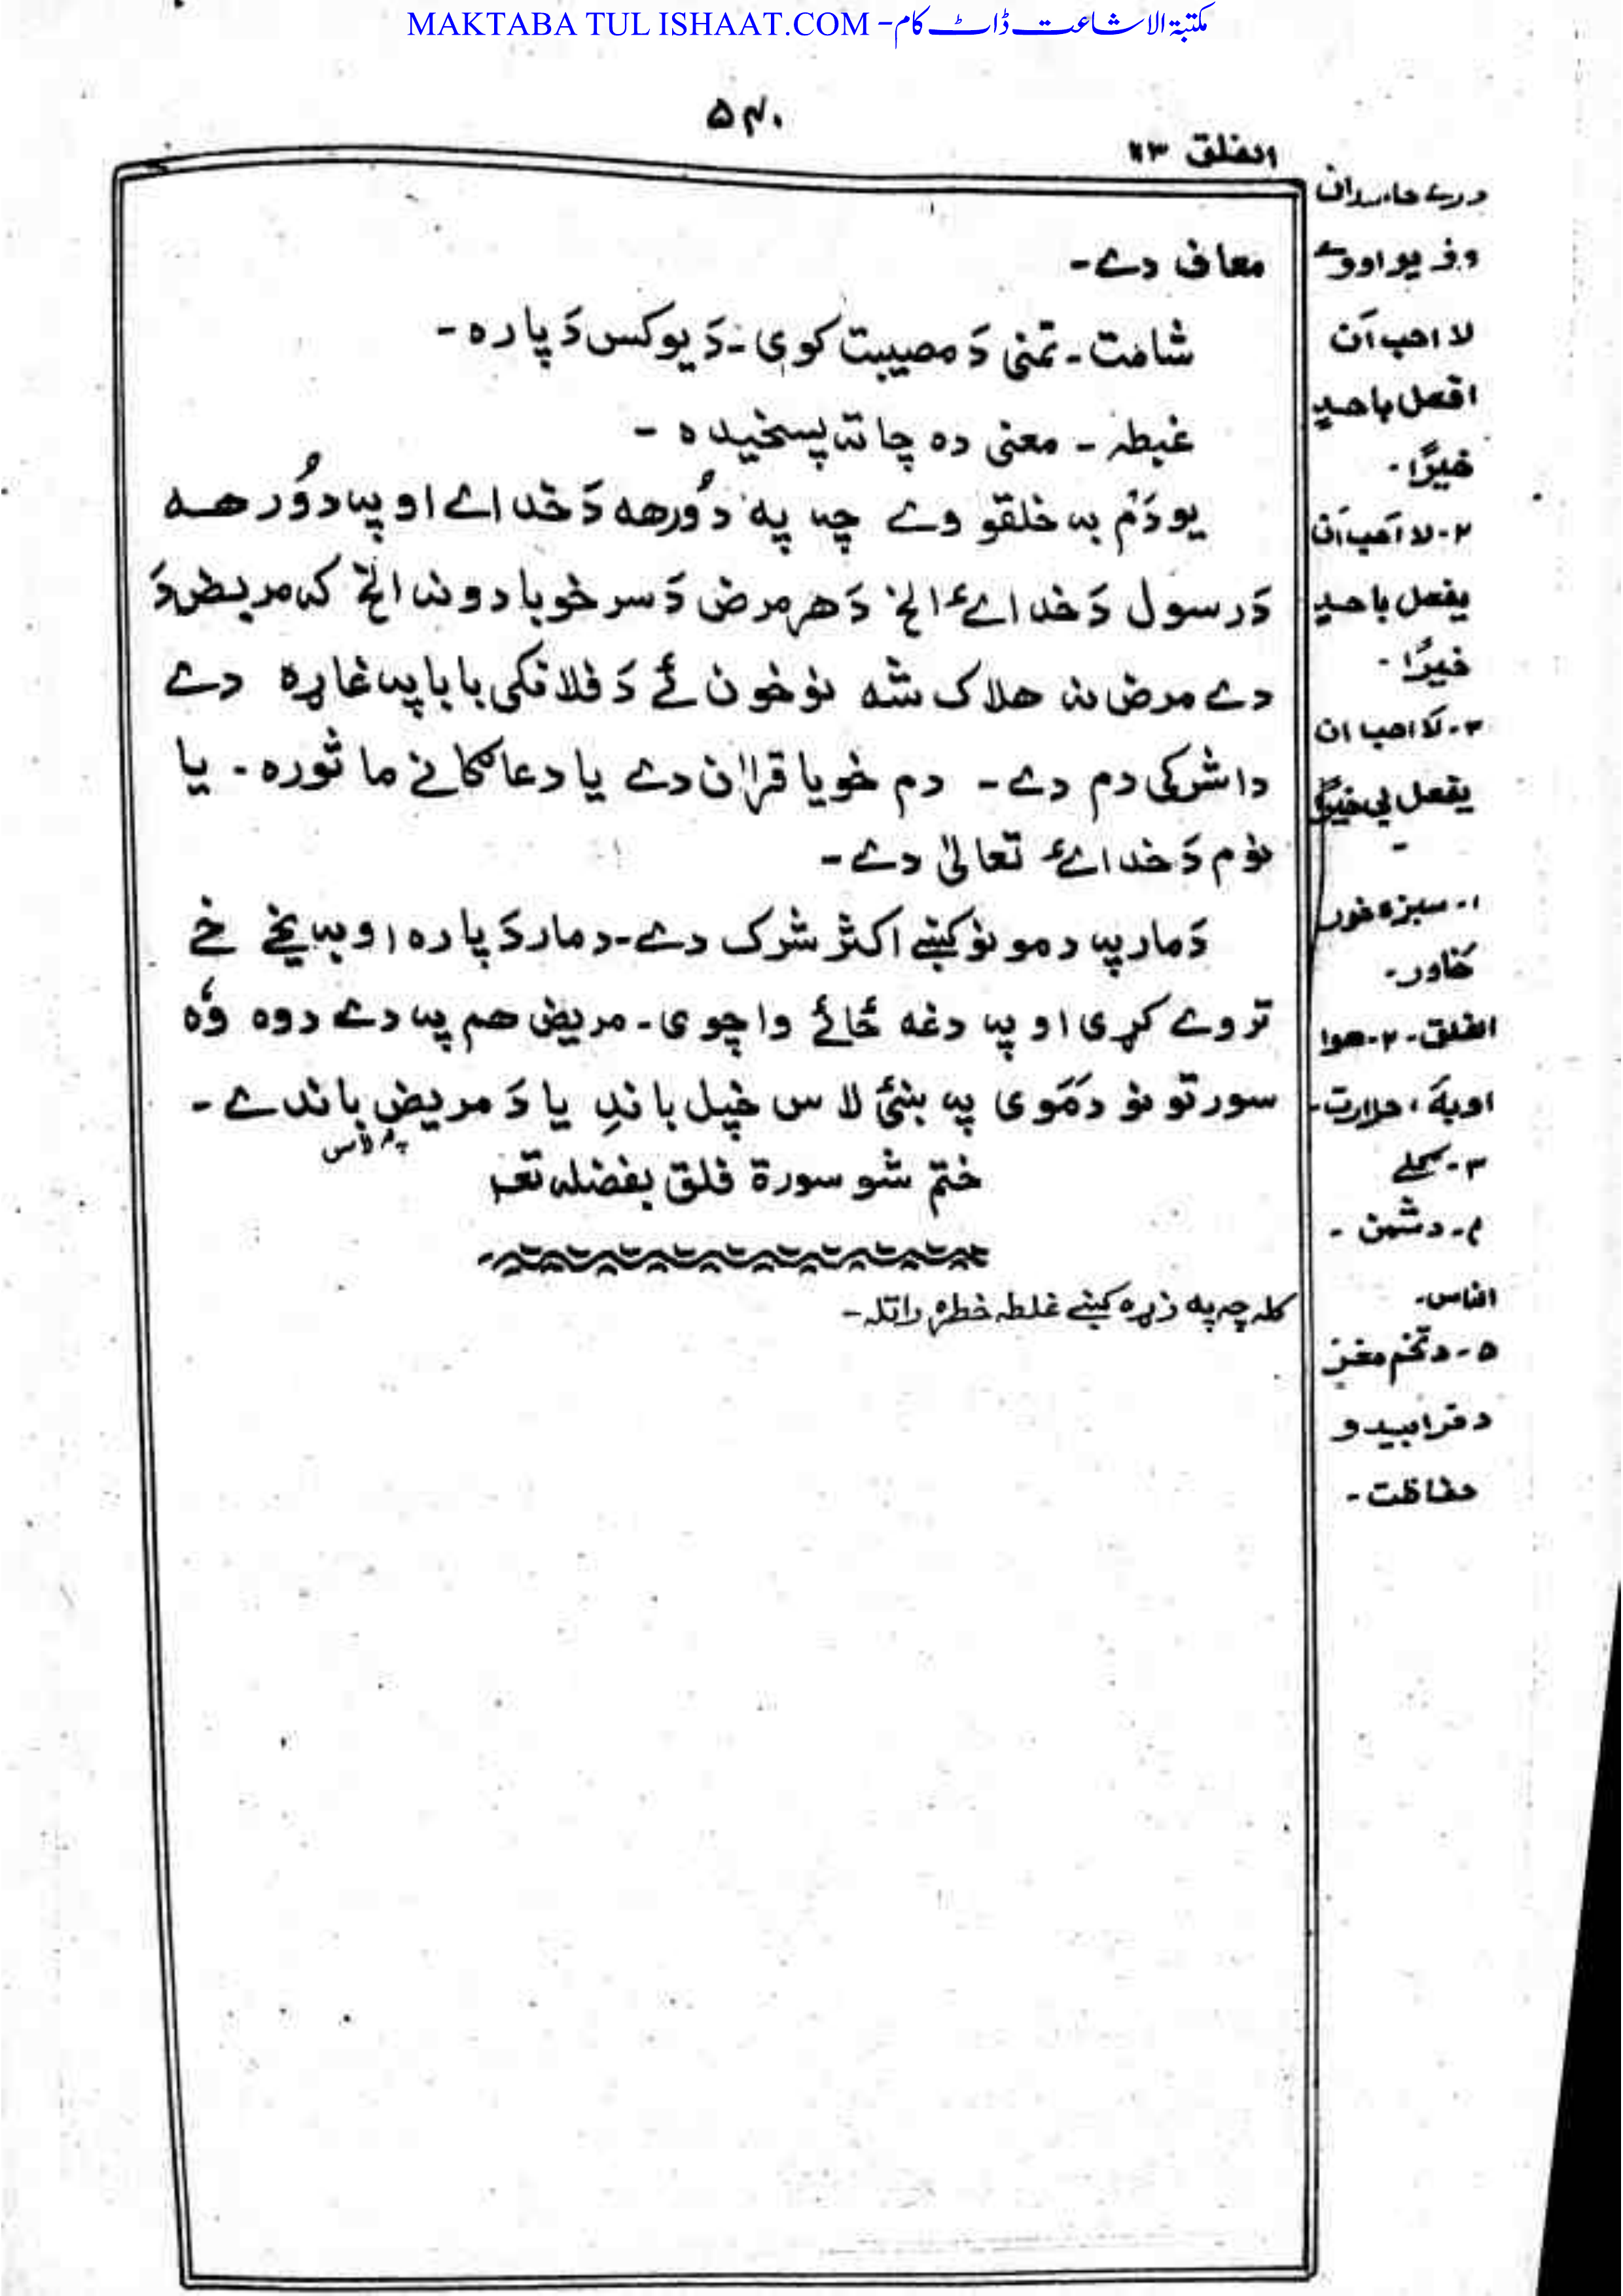 MAKTABA TUL ISHAAT.COM - مکتبۃ الاشاعت ڈاٹ کام
۵۴۰
الفلق ۱۱۳
معاف دے۔
شامت۔ تمنی دَ مصیبت کوی۔ دَ یو کس دَ پارہ۔
غبطہ۔ معنی دہ چاتہ پسخیدہ۔
یو دَم بہ خلقو وے چہ پہ دُورھہ دَ خدائے او پہ دُورھہ
دَ رسول دَ خدائۓ الخ دَ ھر مرض دَ سر خو بادونہ الخ کہ مریض دَ
دے مرض نہ ھلاک شہ نو خون ئے دَ فلانکی بابا پہ غاړه دے
دا شرکی دم دے۔ دم خو یا قراٰن دے یا دعا گانے ماثورہ۔ یا
نوم دَ خدائۓ تعالیٰ دے۔
دَ مار پہ دمونو کښے اکثر شرک دے۔ د مار دَ پارہ اوبہ یخے خے
تروے کړی او پہ دغہ ځائے واچوی۔ مریض ھم پہ دے دوہ وٗہ
سورتونو دَمَوی پہ ښئ لاس خپل باندِ یا دَ مریض باندے۔
پہ لاس
ختم شو سورۃ فلق بفضلہ تعٰ
کلہ چہ پہ زړہ کښے غلطہ خطرہ راتلہ۔
درے حاسدان
وؤ یو اووے
لا احب اَن
افعل باحدٍ
خیرًا۔
۲۔ لا اَحب اَن
یفعل باحدٍ
خیرًا۔
۳۔ لَا احب ان
یفعل لی خیرًا
۱۔ سبزہ خور
خاور۔
الفلق۔ ۲۔ ھوا
اوبہَ، حرارت۔
۳۔
۴۔ دشمن۔
الناس۔
۵۔ د تخم مغز
د خرابیدو
حفاظت۔